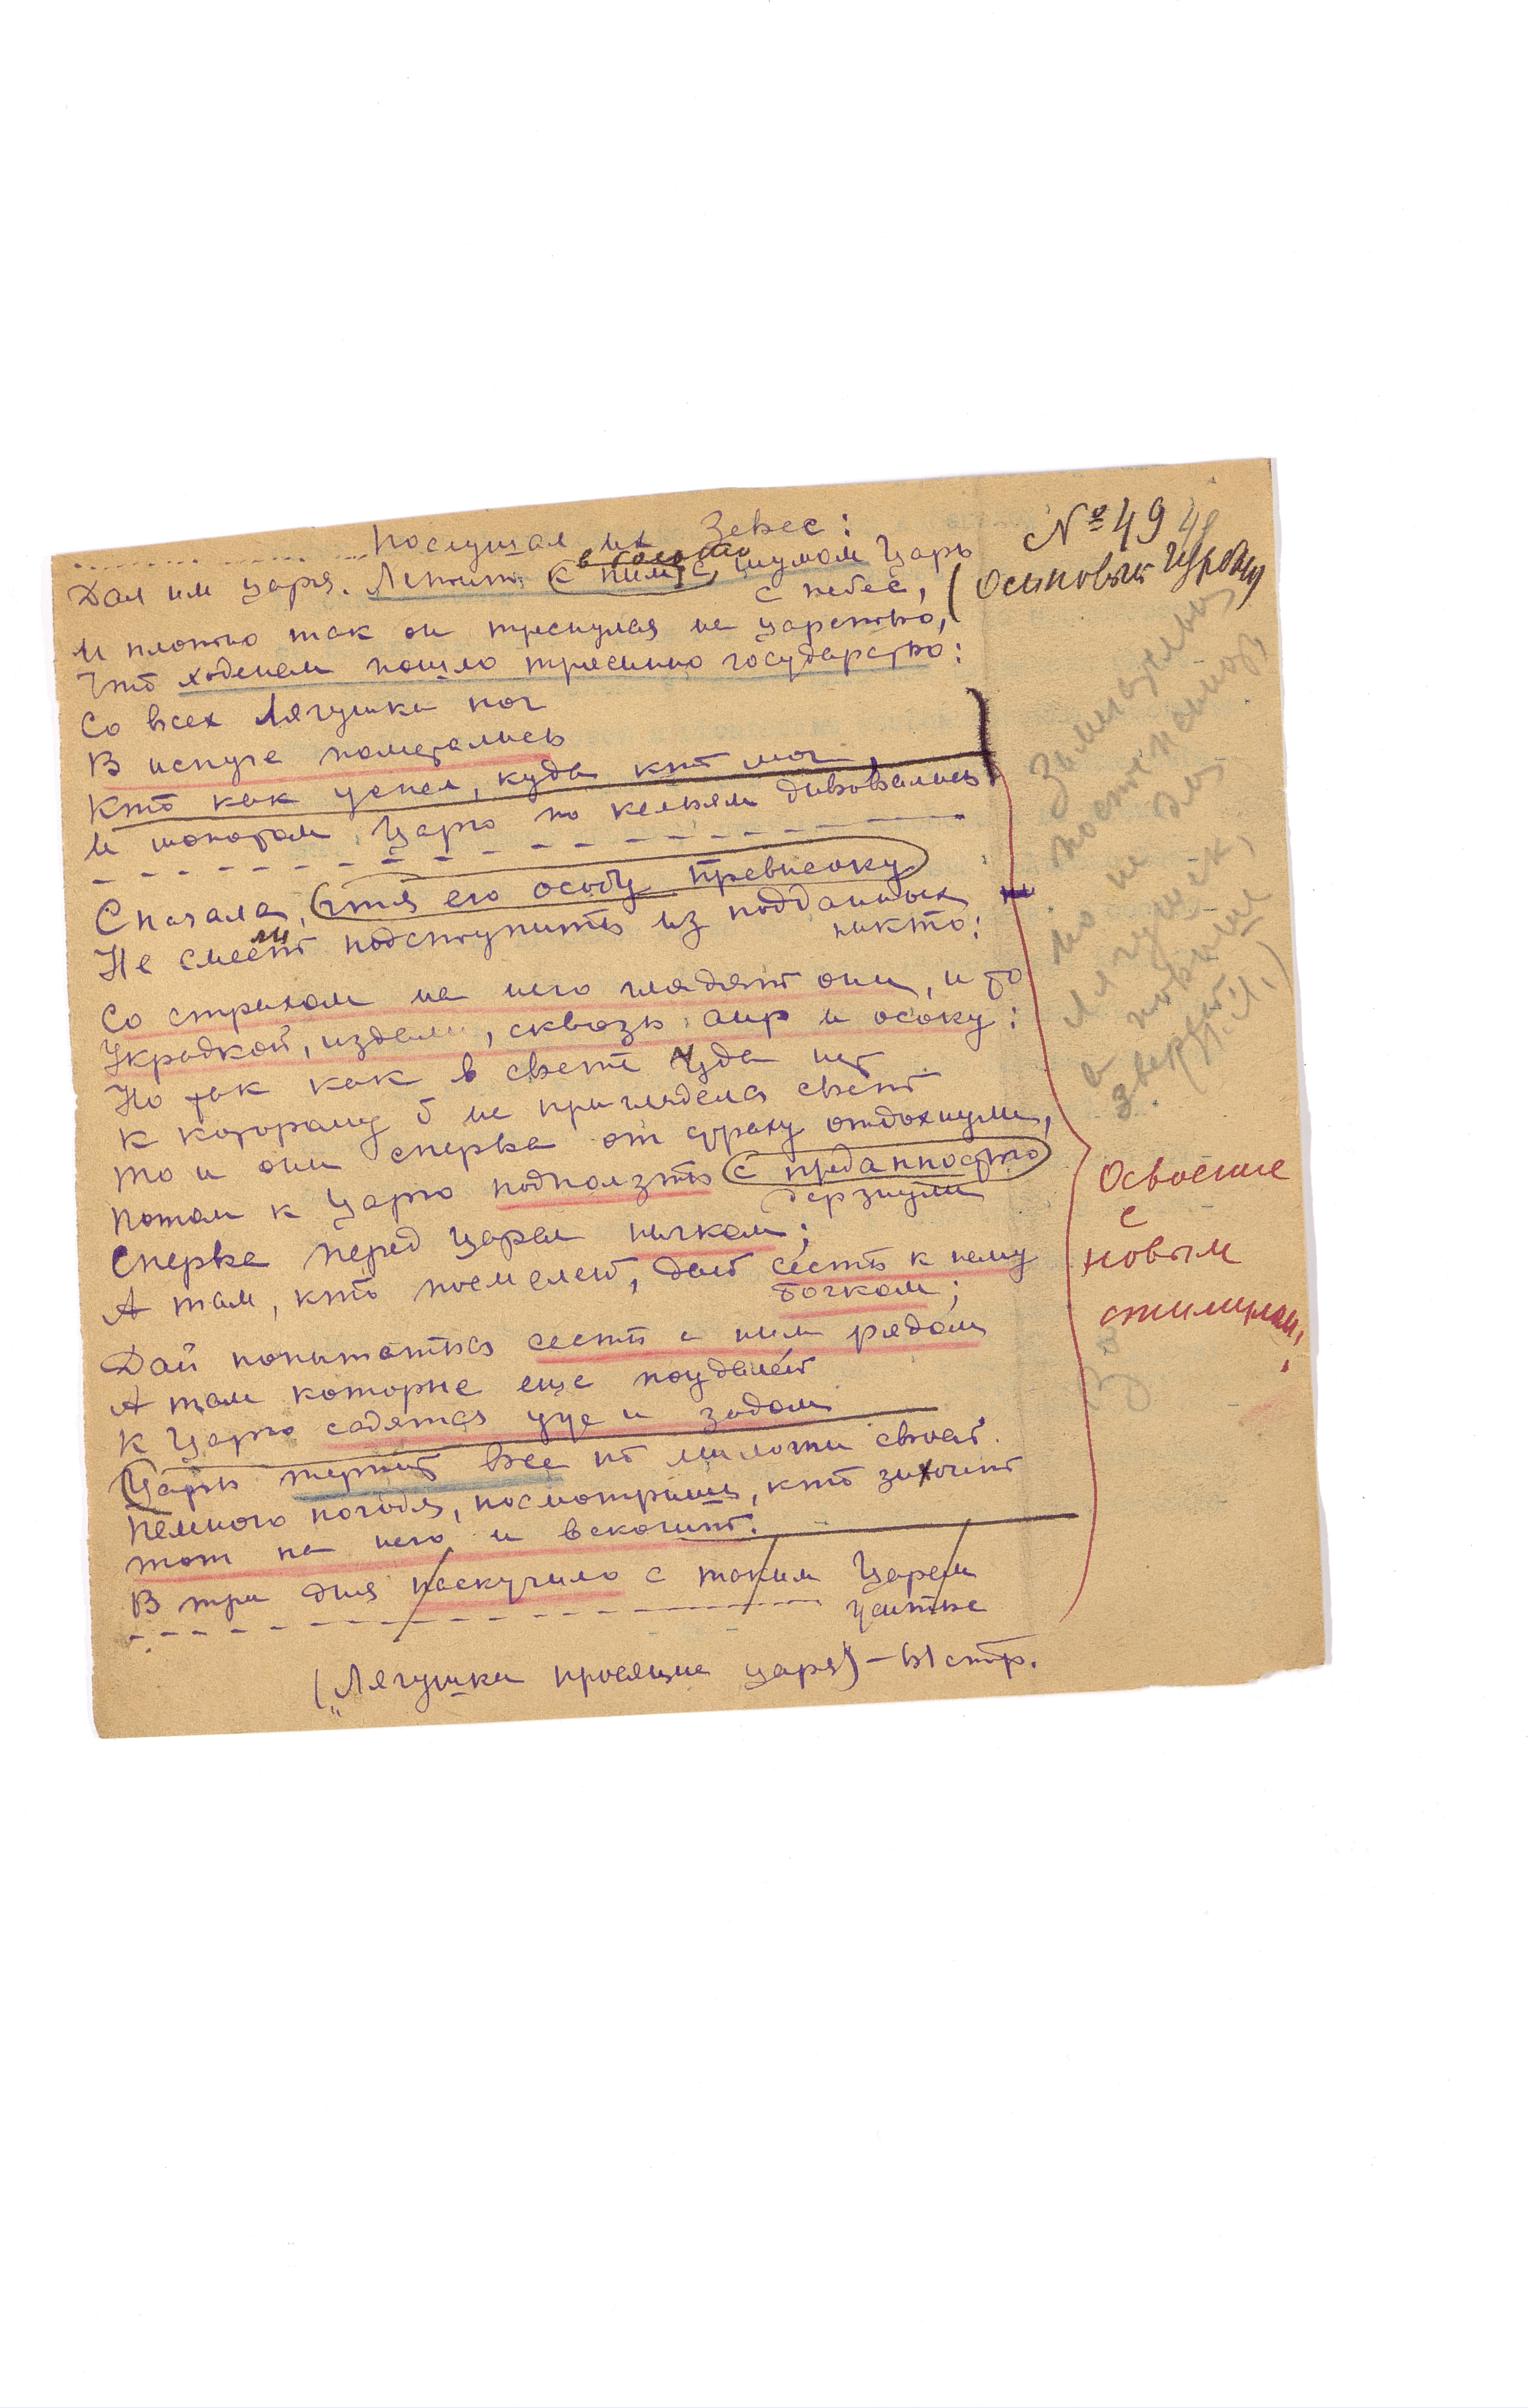 Послушал их Зевес:
№ 49
Дал им царя. Летит к ним с шумом Царь
в болото
с небес,
(Осиновый чурбан)
И плотно так он треснулся на царство,
Что ходенем пошло трясинно государство:
Со всех Лягушки ног
В испуге пометались
Кто как успел, куда кто мог
И шопотом Царю по кельям дивовались
Сначала, чтя его особу превысоку
Не смеет подступить из подданных
никто:
Со страхом на него глядят они, и то
Украдкой, издали, сквозь аир и осоку:
Но так как в свете чуда нет
К которому б не пригляделся свет
То и они сперва от страху отдохнули,
Потом к Царю подползть с преданностью
дерзнули
Сперва перед Царем ничком;
А там, кто посмелей, дай сесть к нему
бочком;
Дай попытаться сесть с ним рядом
А там которые еще поудалей
К Царю садятся уже и задом
Царь терпит все по милости своей.
Немного погодя, посмотришь, кто захочит
тот на него и вскочит.
В три дня наскучило с таким Царем
житье
(„Лягушки просящие царя) – 61 стр.
но не для
лягушек,
зверей
Освоение
с
новым
стимулом,